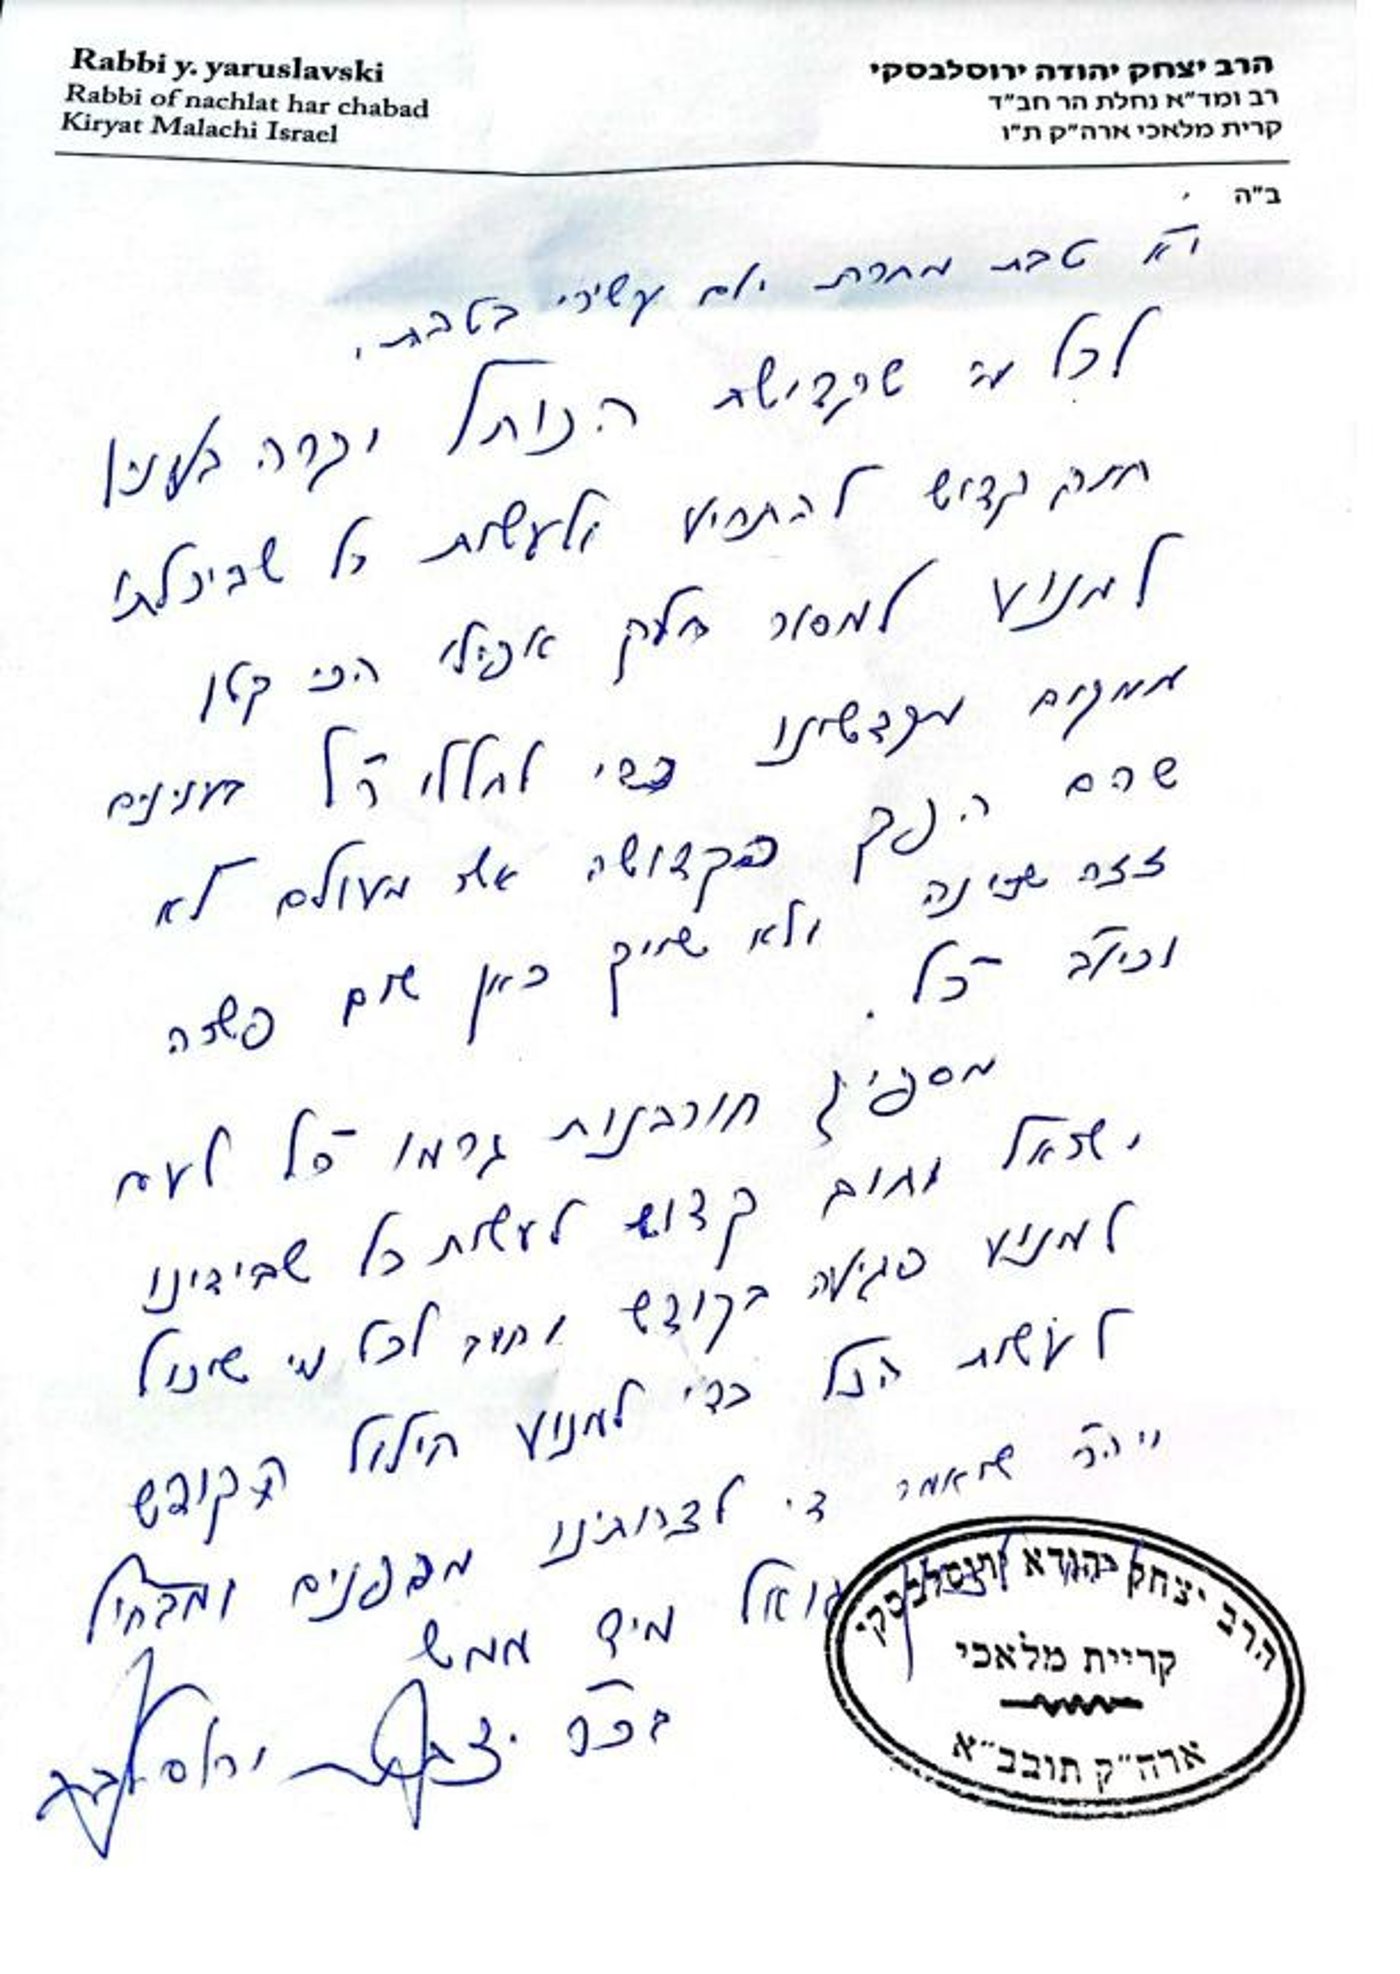 Rabbi y. yaruslavski
Rabbi of nachlat har chabad
Kiryat Malachi Israel
הרב יצחק יהודה ירוסלבסקי
רב ומד"א נחלת הר חב"ד
קרית מלאכי ארה"ק ת"ו
ב"ה
י"א טבת מחרת יום עשירי בטבת.
לכל מי שקדושת הכותל יקרה בעיניו
חוב קדוש להתריע ולעשות כל שביכלתו
למנוע למסור חלק אפילו הכי קטן
ממקום מקדשינו כדי לחללו ר"ל בענינים
שהם היפך הקדושה אשר מעולם לא
זזה שכינה ולא שייך כאן שום פשרה
וכיו"ב כלל.
מספיק חורבנות גרמו כל לעם
ישראל וחוב קדוש לעשות כל שבידינו
למנוע פגיעה בקודש וחוב לכל מי שיכול
לעשות הנ"ל כדי למנוע חילול הקודש
ויה"ר שיאמר די לצרותינו מבפנים ומבחוץ
גואל מיד ממש
בכ"ר יצחק ירוסלבסקי
הרב יצחק יהודא ירוסלבסקי
קריית מלאכי
ארה"ק תובב"א